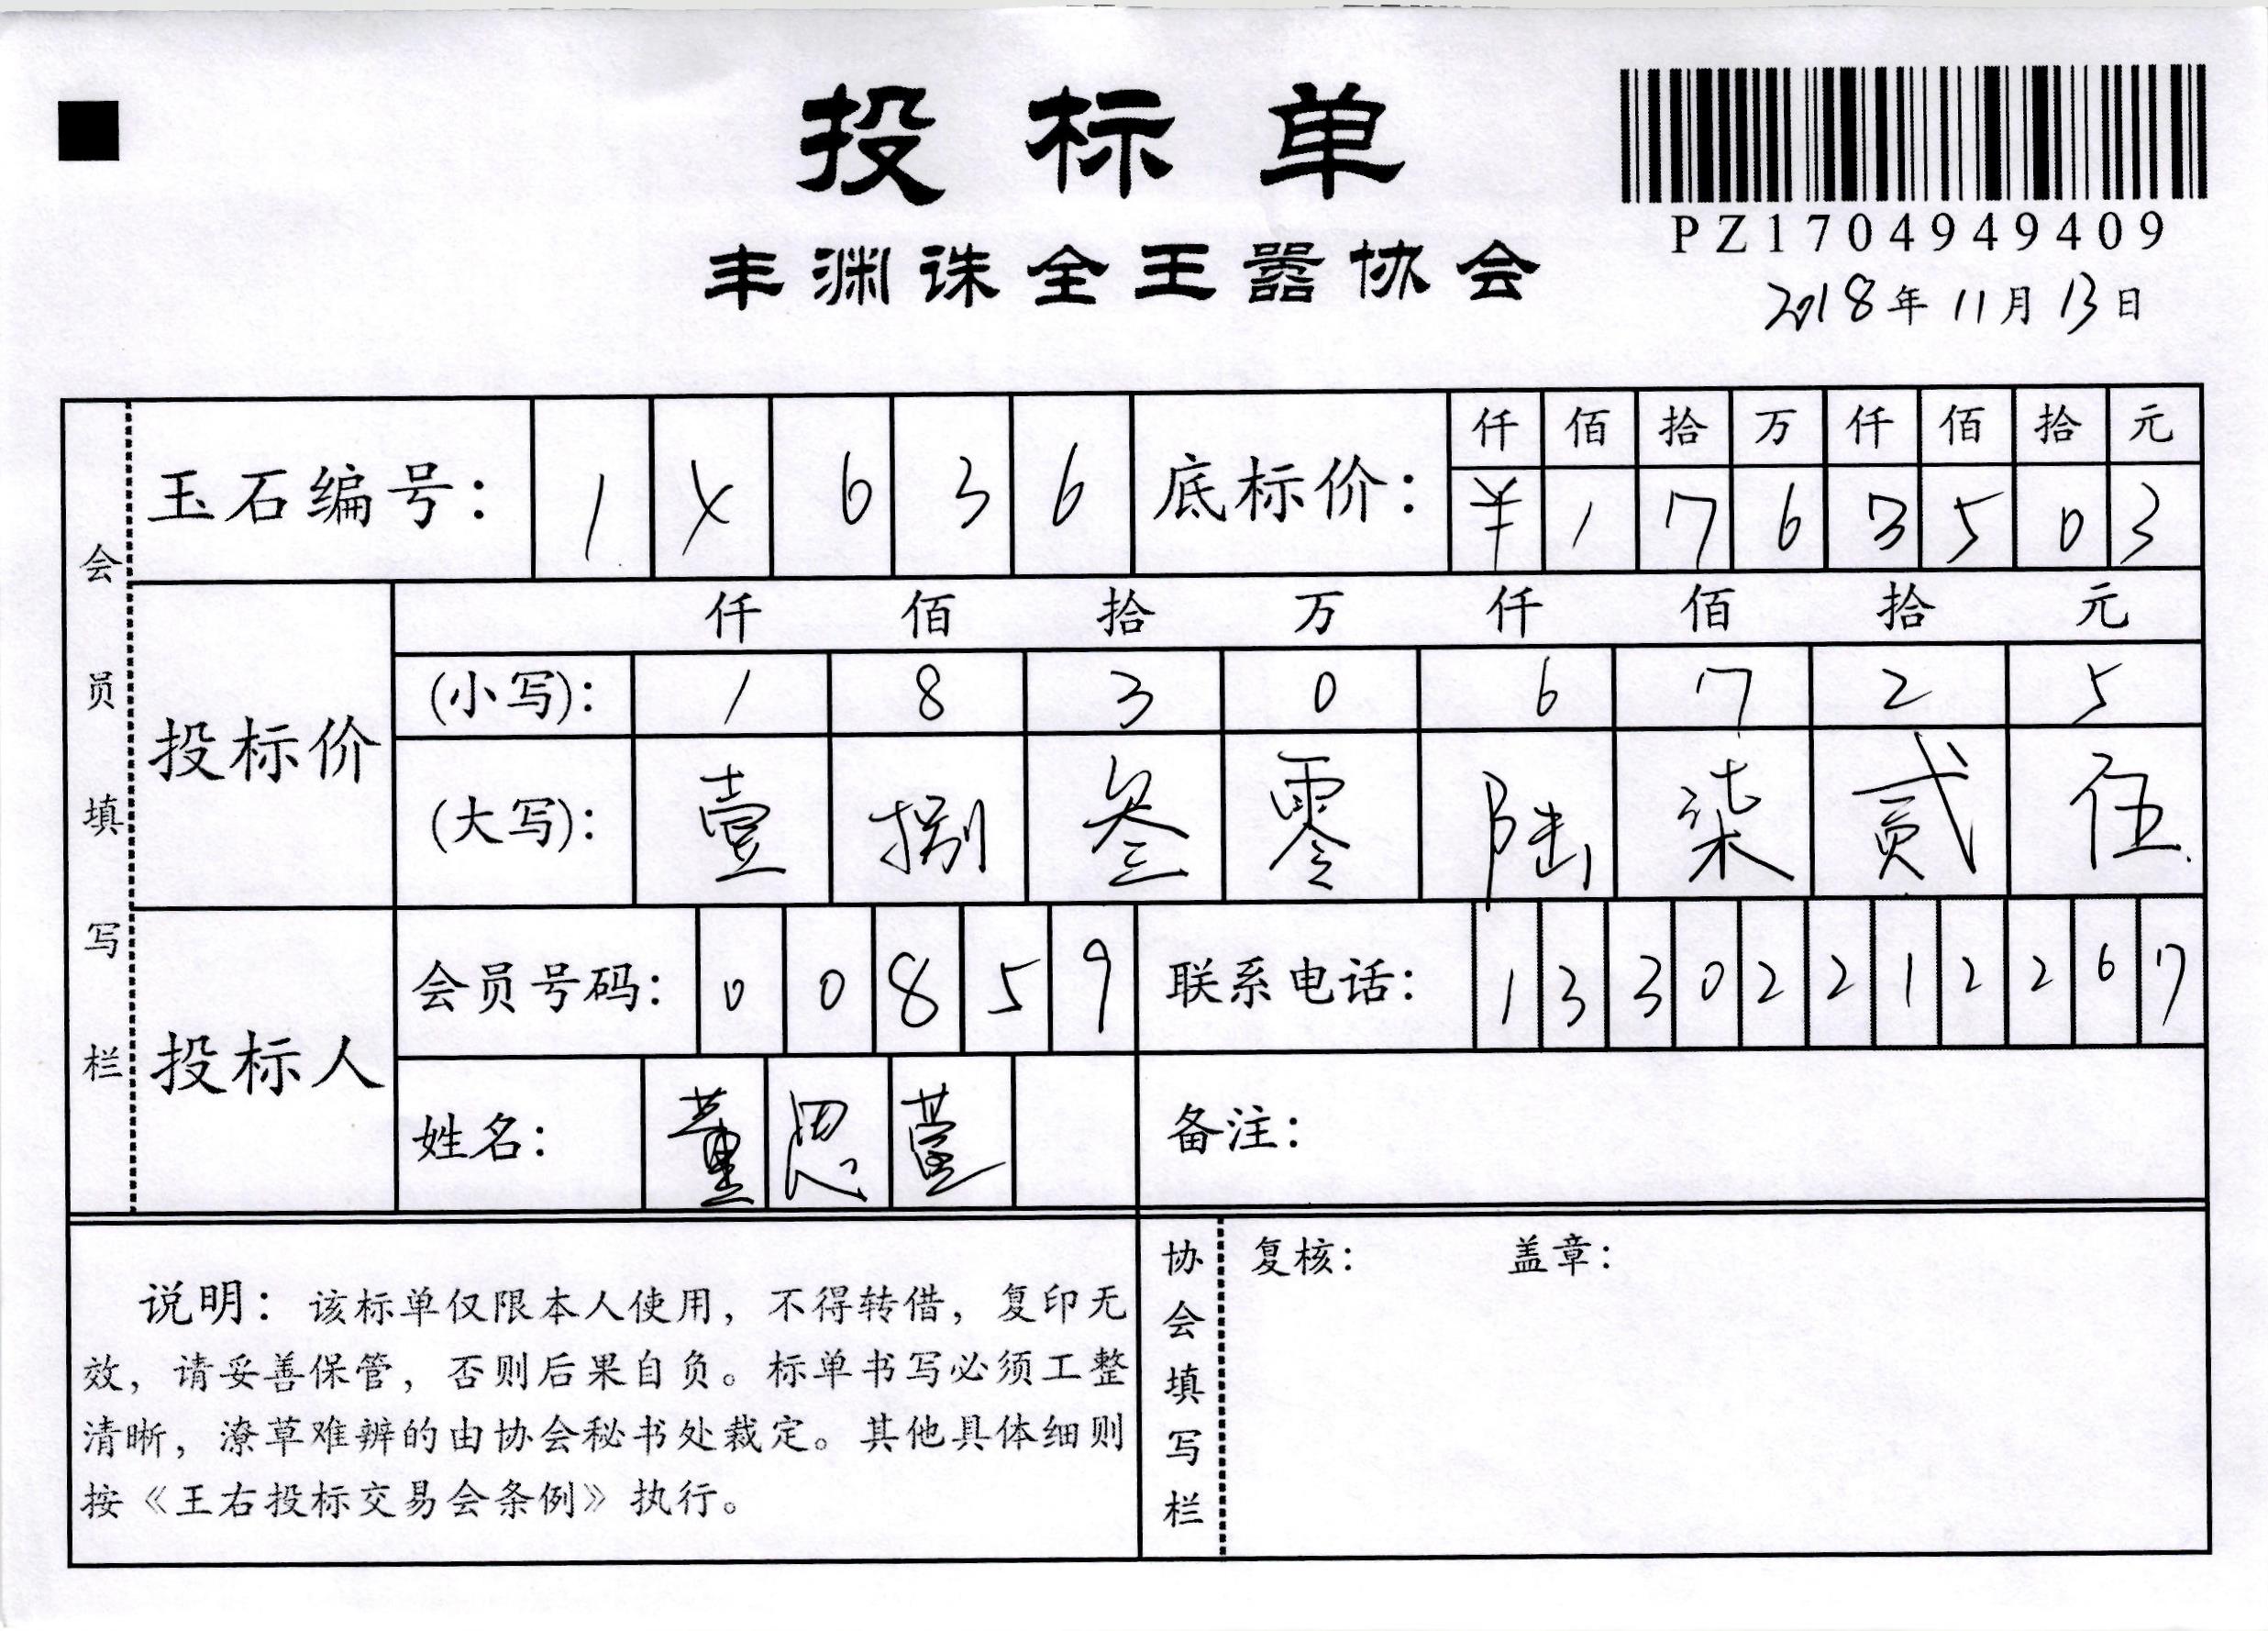 投标单
PZ1704949409
丰渊诛全王嚣协会
2018年11月13日
会员填写栏
玉石编号: 1 X 6 3 6 底标价: 仟 佰 拾 万 仟 佰 拾 元
¥ 1 7 6 3 5 0 3
投标价
仟 佰 拾 万 仟 佰 拾 元
(小写): 1 8 3 0 6 7 2 5
(大写): 壹 捌 叁 零 陆 柒 贰 伍
投标人
会员号码: 0 0 8 5 9 联系电话: 1 3 3 0 2 2 1 2 2 6 7
姓名: 董 思 备注:
说明: 该标单仅限本人使用, 不得转借, 复印无
效, 请妥善保管, 否则后果自负。标单书写必须工整
清晰, 潦草难辨的由协会秘书处裁定。其他具体细则
按《王右投标交易会条例》执行。
协会填写栏
复核: 盖章: